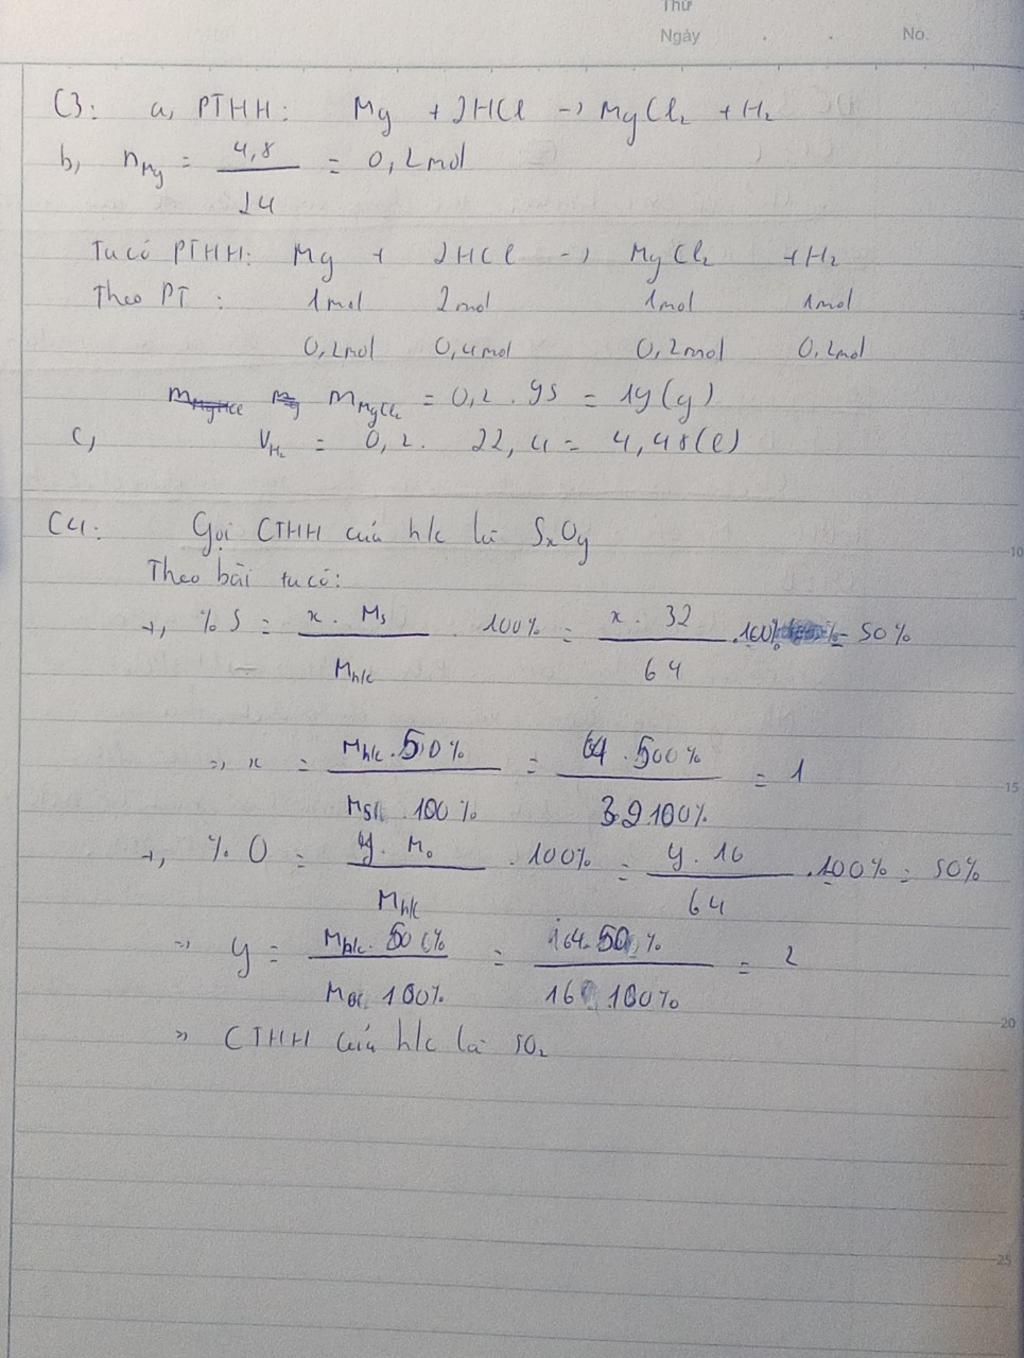 Thứ
Ngày . . No.
C3: a, PTHH: Mg + 2HCl -> MgCl₂ + H₂
b, nMg = 4,8 / 24 = 0,2mol
Ta có PTHH: Mg + 2HCl -> MgCl₂ + H₂
Theo PT : 1mol 2mol 1mol 1mol
0,2mol 0,4mol 0,2mol 0,2mol
mMgCl₂ = 0,2 . 95 = 19 (g)
c, VH₂ = 0,2 . 22,4 = 4,48 (l)
C4: Gọi CTHH của h/c là SxOy
Theo bài ta có:
+, % S = x . Ms / Mh/c . 100% = x . 32 / 64 .100% = 50%
=> x = Mh/c . 50% / Ms . 100% = 64 . 50% / 32 100% = 1
+, % O = y . Mo / Mh/c . 100% = y . 16 / 64 . 100% = 50%
=> y = Mh/c . 50% / Mo . 100% = 64 . 50 % / 16 . 100% = 2
=> CTHH của h/c là SO₂
10
15
20
25